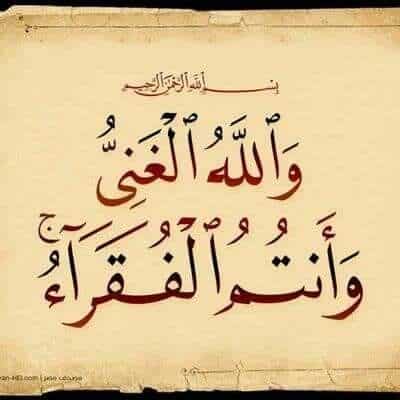 بِسْمِ ٱللَّهِ ٱلرَّحْمَٰنِ ٱلرَّحِيمِ
وَٱللَّهُ ٱلْغَنِىُّ
وَأَنتُمُ ٱلْفُقَرَآءُ ۚ